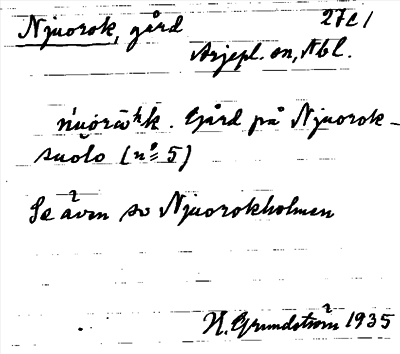 Njuorok, gård 27c1
Arjepl. sn, Nbl.
ńuorāʰk. Gård på Njuorok-
suolo (nº 5)
Se även sv Njuorokholmen
H. Grundström 1935